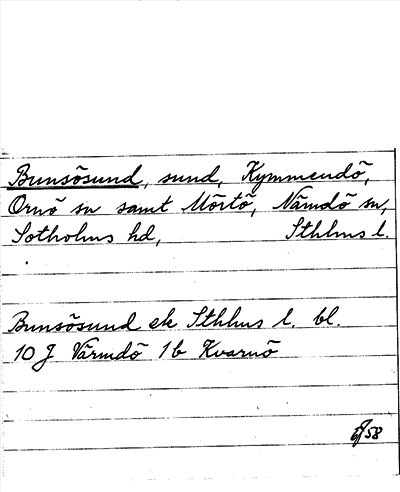 Bunsösund, sund, Kymmendö,
Ornö sn samt Mörtö, Nämdö sn,
Sotholms hd, Sthlms l.
Bunsösund ek Sthlms l. bl.
10 J Värmdö 1b Kvarnö
58